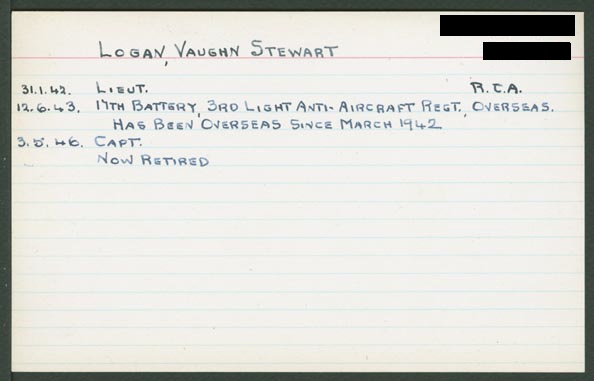 LOGAN, VAUGHN STEWART
31.1.42. LIEUT. R.C.A.
12.6.43. 17TH BATTERY, 3RD LIGHT ANTI-AIRCRAFT REGT., OVERSEAS.
HAS BEEN OVERSEAS SINCE MARCH 1942
3.5.46. CAPT.
NOW RETIRED